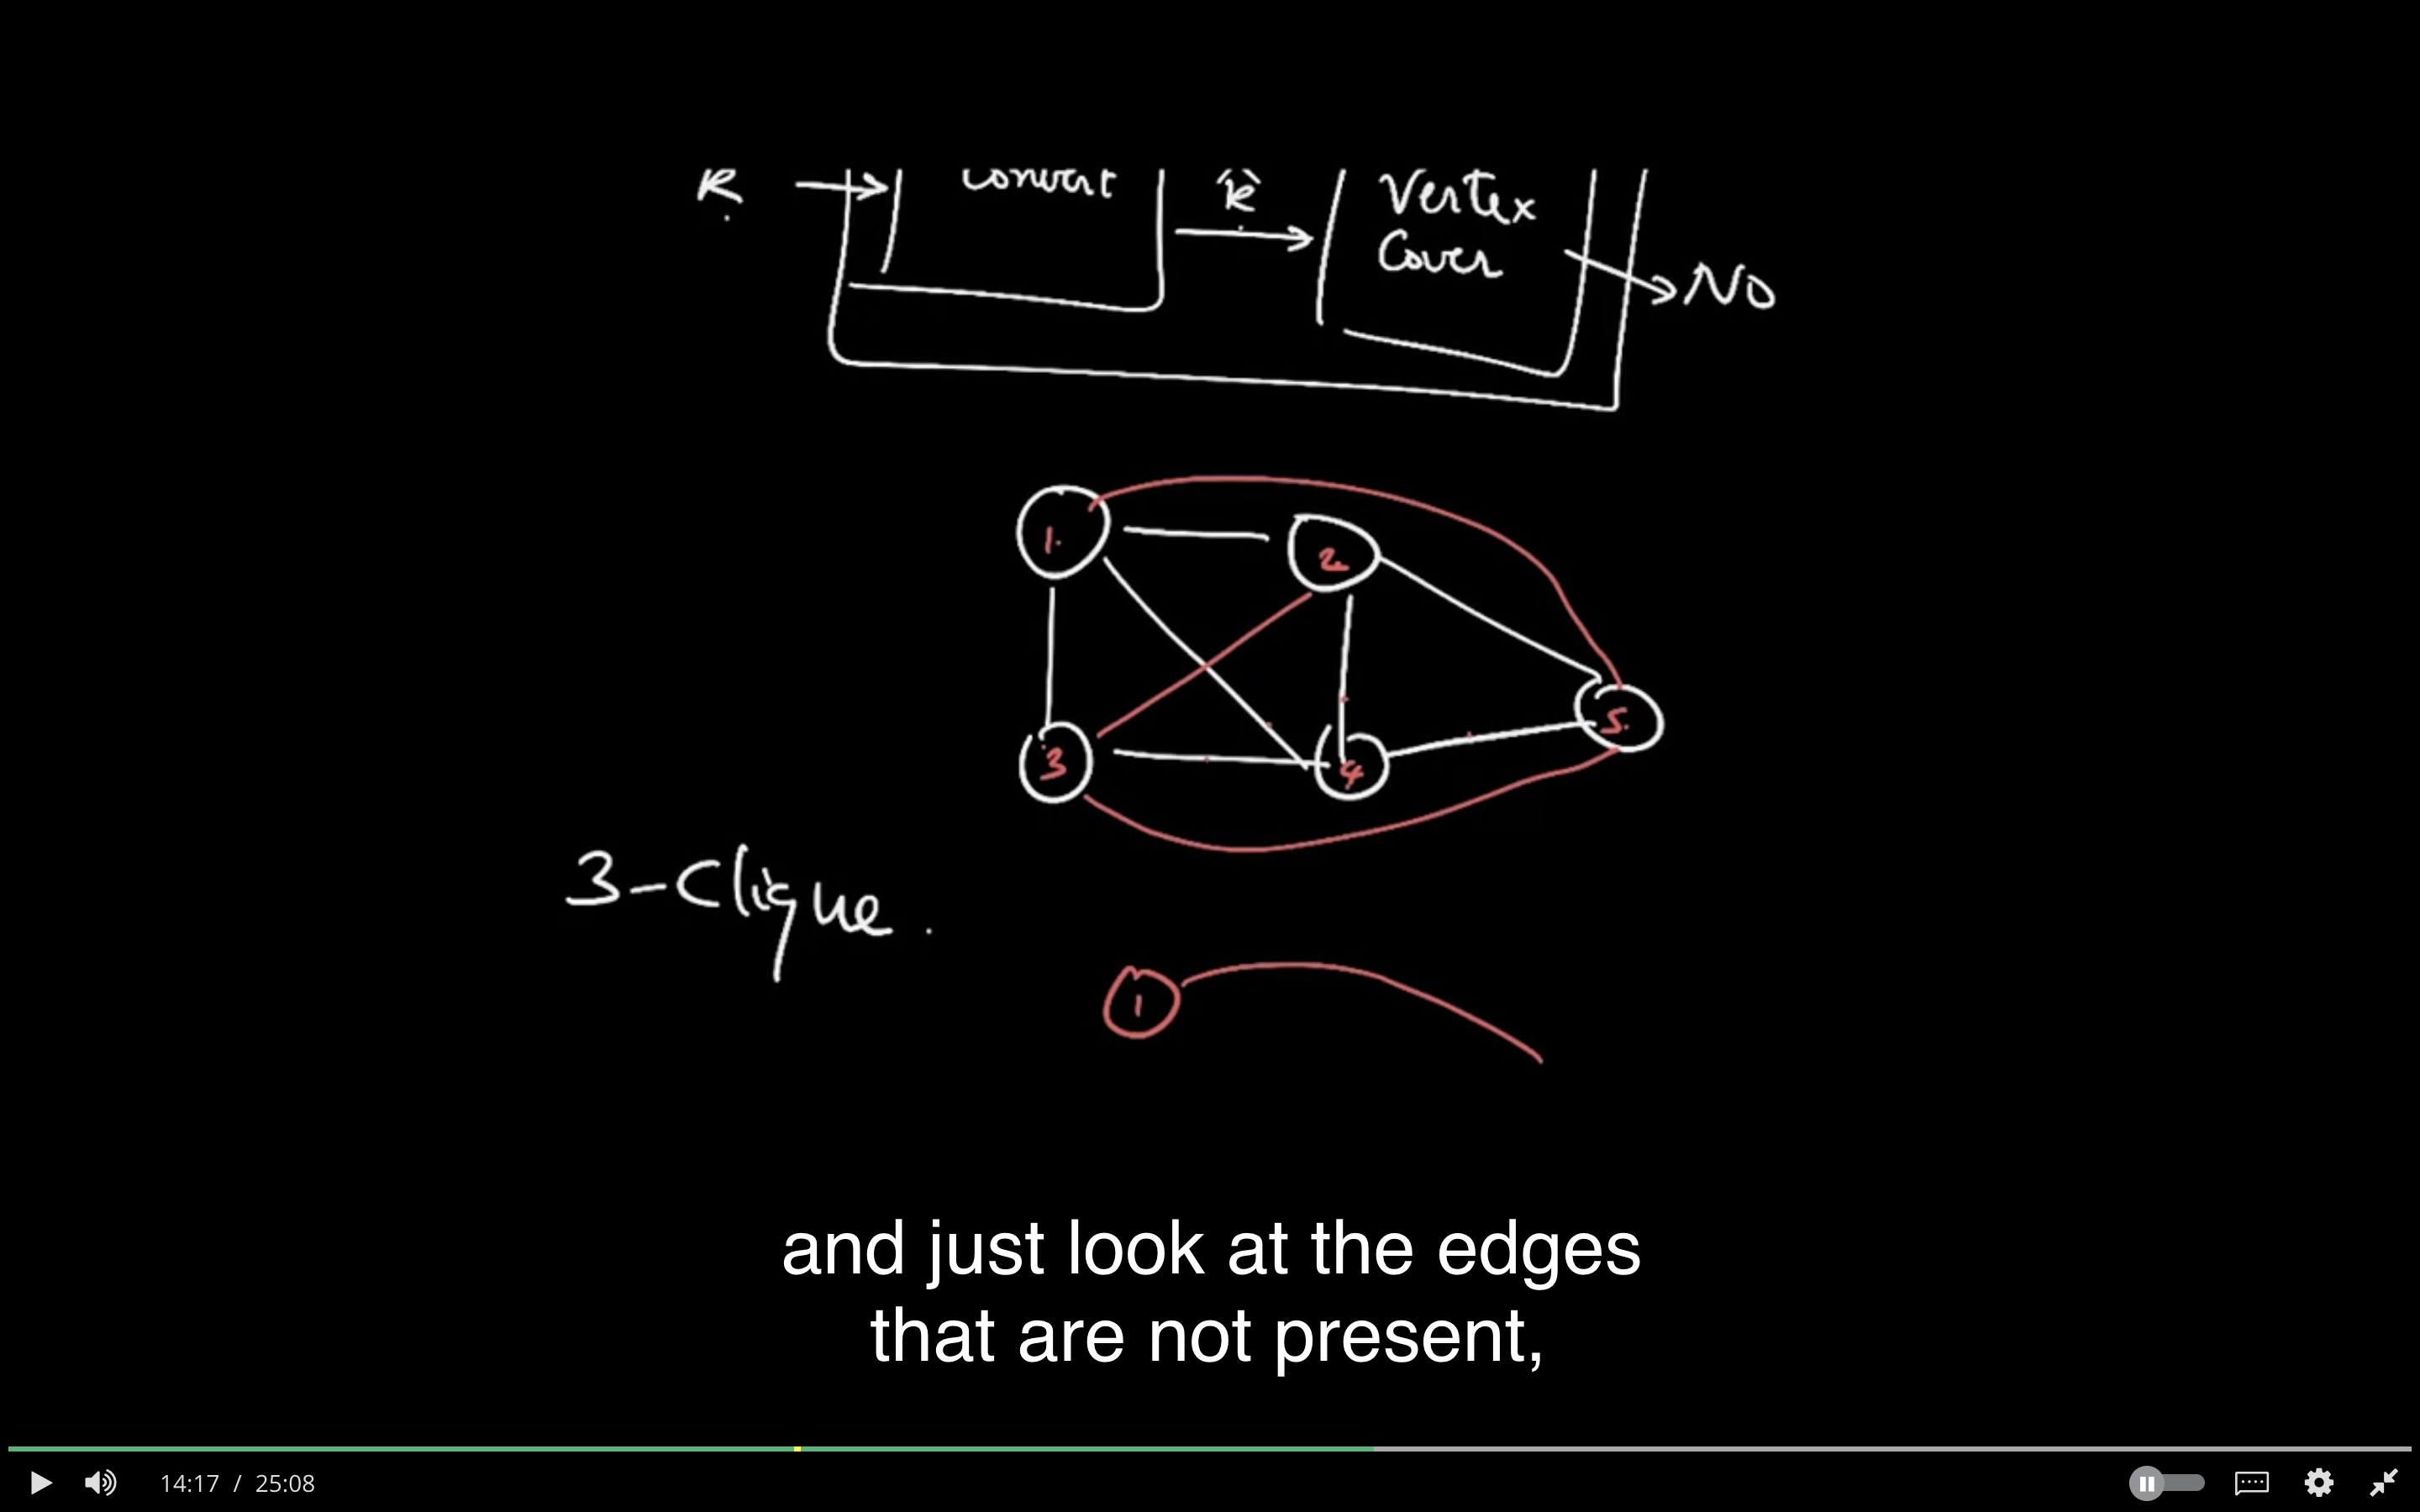 k convert k̂ Vertex
Cover
NO
1. 2
5.
3 4
3-Clique.
1
and just look at the edges
that are not present,
14:17 / 25:08